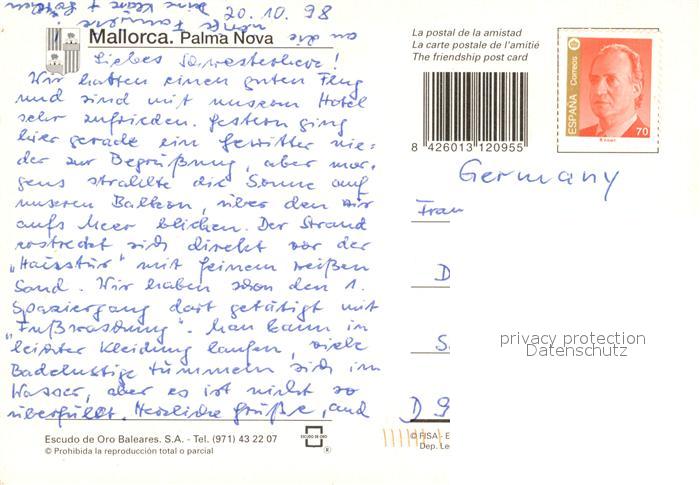 20.10.98
an die
Mallorca. Palma Nova
Liebes Schwesterherz!
Wir hatten einen guten Flug
und sind mit unserem Hotel
sehr zufrieden. Gestern ging
hier gerade ein Gewitter nie=
der zur Begrüßung, aber mor=
gens strahlte die Sonne auf
unseren Balkon, über den wir
aufs Meer blicken. Der Strand
erstreckt sich direkt vor der
"Haustür" mit feinem weißen
Sand. Wir haben schon den 1.
Spaziergang dort getätigt mit
"Fußwaschung". Man kann in
leichter Kleidung laufen, viele
Badelustige tummeln sich im
Wasser, aber es ist nicht so
überfüllt. Herzliche Grüße, auch
Escudo de Oro Baleares. S.A. - Tel. (971) 43 22 07
© Prohibida la reproducción total o parcial
ESCUDO DE ORO
®
La postal de la amistad
La carte postale de l'amitié
The friendship post card
8 426013 120955
ESPAÑA Correos
70
Germany
Frau
D
S
D 9
privacy protection
Datenschutz
© FISA - E
Dep. Le